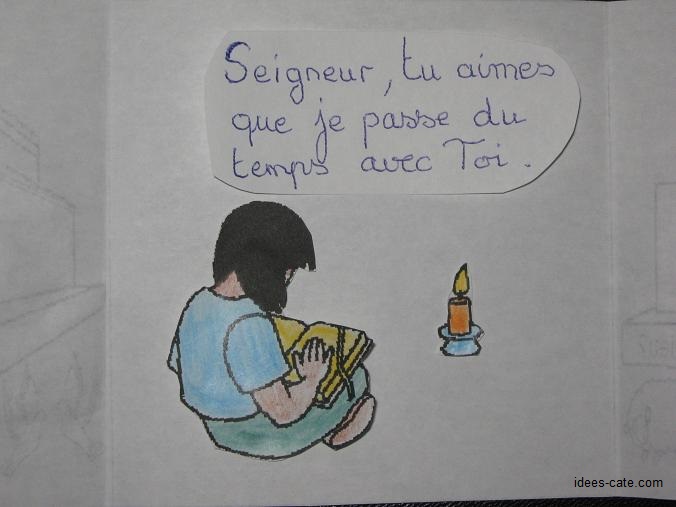 Seigneur, tu aimes
que je passe du
temps avec Toi.
idees-cate.com